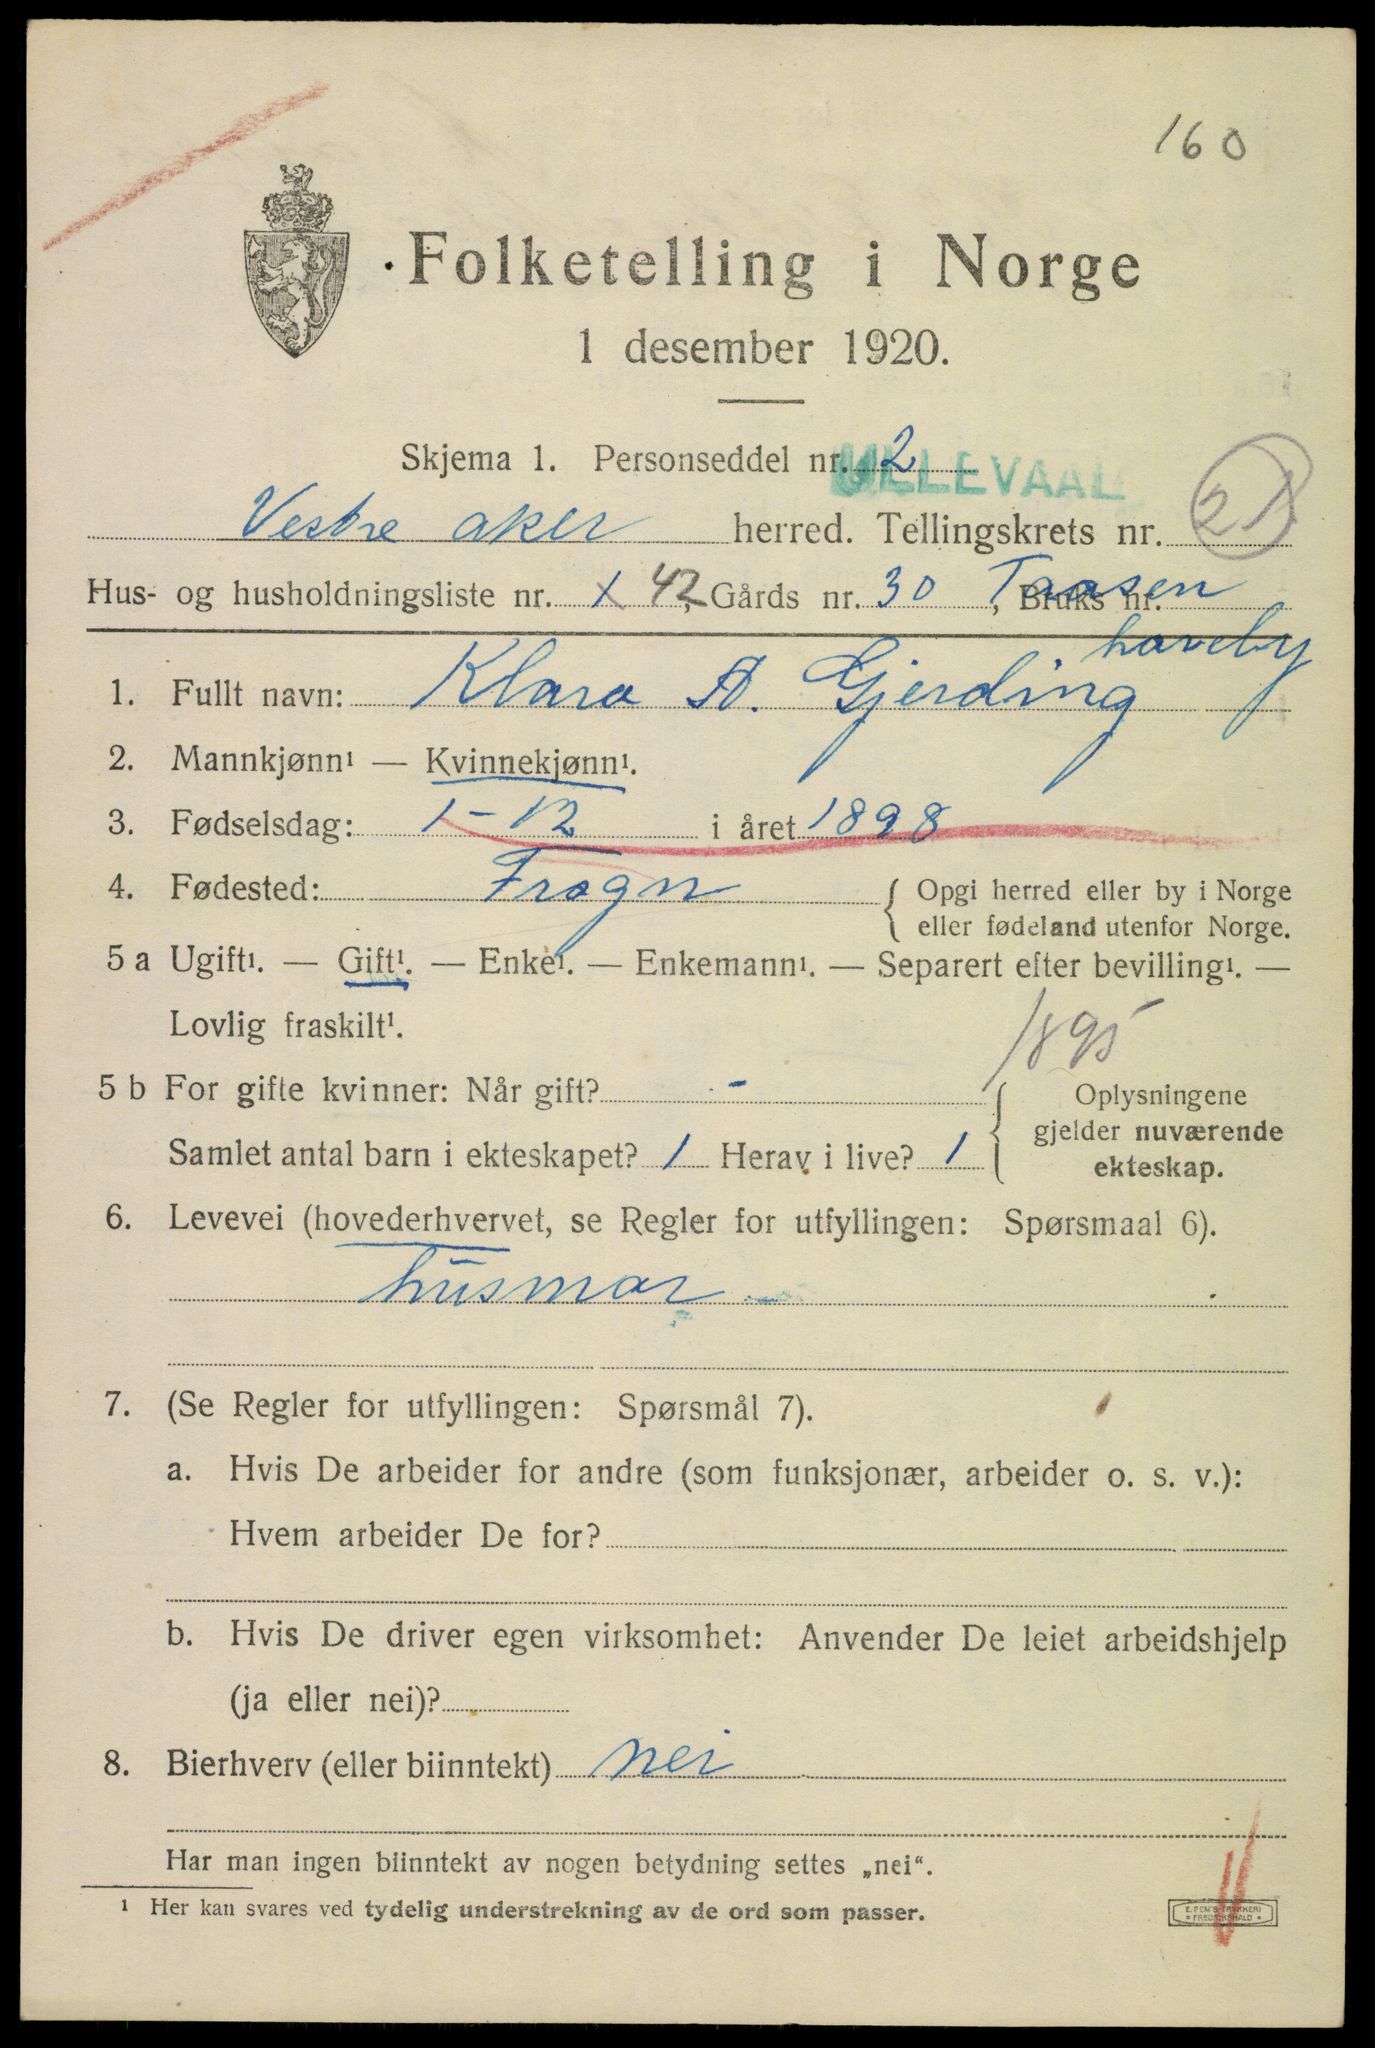 160
Folketelling i Norge
1 desember 1920.
Skjema 1. Personseddel nr. 2
ULLEVAAL
Vestre aker herred. Tellingskrets nr. 21
Hus- og husholdningsliste nr. 1 42, Gårds nr. 30, Bruks nr. Taasen
haveby
1. Fullt navn: Klara A. Gjerding
2. Mannkjønn¹ — Kvinnekjønn¹.
3. Fødselsdag: 1-12 i året 1898
4. Fødested: Frogn { Opgi herred eller by i Norge
eller fødeland utenfor Norge.
5 a Ugift¹. — Gift¹. — Enke¹. — Enkemann¹. — Separert efter bevilling¹. —
Lovlig fraskilt¹.
1895
5 b For gifte kvinner: Når gift? - { Oplysningene
gjelder nuværende
Samlet antal barn i ekteskapet? 1 Herav i live? 1
ekteskap.
6. Levevei (hovederhvervet, se Regler for utfyllingen: Spørsmaal 6).
husmor
7. (Se Regler for utfyllingen: Spørsmål 7).
a. Hvis De arbeider for andre (som funksjonær, arbeider o. s. v.):
Hvem arbeider De for?
b. Hvis De driver egen virksomhet: Anvender De leiet arbeidshjelp
(ja eller nei)?
8. Bierhverv (eller biinntekt) nei
Har man ingen biinntekt av nogen betydning settes „nei“.
¹ Her kan svares ved tydelig understrekning av de ord som passer.
E. SEM'S TRYKKERI
* FREDRIKSHALD *